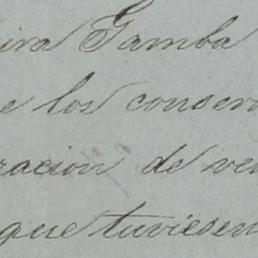 ira Gamba
e los conser
racion de ve
que tuviesen